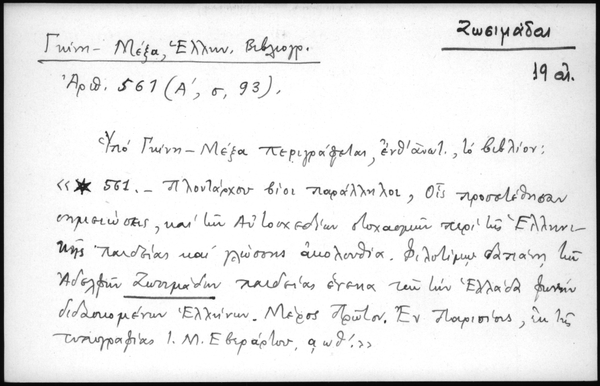 Ζωσιμάδαι
Γκίνη - Μέξα, Ἑλλην. Βιβλιογρ.
19 αἰ.
Ἀριθ. 561 (Α', σ, 93).
Ὑπό Γκίνη - Μέξα περιγράφεται, ἐνθ' ἀνωτ., τό βιβλίον:
«✶ 561. - Πλουτάρχου βίοι παράλληλοι, Οἷς προσετέθησαν
σημειώσεις, καί τῶν Αὐτοσχεδίων στοχασμῶν περί τῆς Ἑλληνι-
κῆς παιδείας καί γλώσσης ἀκολουθία. Φιλοτίμῳ δαπάνῃ τῶν
Ἀδελφῶν Ζωσιμάδων παιδείας ἕνεκα τῶν τήν Ἑλλάδα φωνήν
διδασκομένων Ἑλλήνων. Μέρος Πρῶτον. Ἐν Παρισίοις, ἐκ τῆς
τυπογραφίας Ι. Μ. Εβεράρτου, αωθ'.»